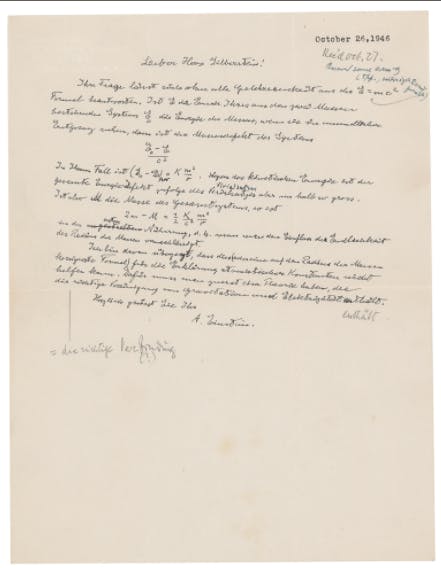 October 26, 1946
Rec'd Oct. 27.
Lieber Herr Silberstein!
Ihre Frage lässt sich ohne alle Gelehrsamkeit aus der E = mc²
Formel beantworten. Ist E die Energie Ihres aus den zwei Massen
bestehenden Systems, E₀ die Energie der Massen, wenn sie in unendlicher
Entfernung ruhen, dann ist der Massendefekt des Systems
E₀ - E / c²
In Ihrem Fall ist (E₀ - E) = K m²/r. Wegen der kinetischen Energie ist der
gesamte Energie-Defekt zufolge des aber nur halb so gross.
Ist also M die Masse des Gesamtsystems, so ist
2m - M = ½ K/c² m²/r
in der Näherung, d. h. wenn man den Einfluss der Endlichkeit
des Radius der Massen vernachlässigt.
Ich bin davon überzeugt, dass auf den Radius der Massen
Formel für die Erklärung atomistischer Konstanten nicht
helfen kann. Dafür muss man zuerst eine Theorie haben, die
die richtige Vereinigung von Gravitation und Elektrizität enthält.
enthält
Herzlich grüsst Sie Ihr
A. Einstein.
= die richtige